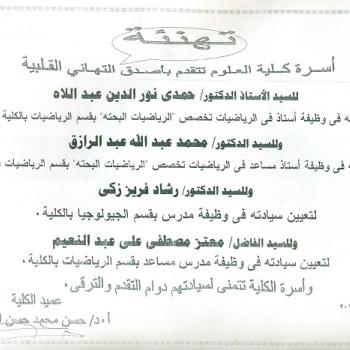 تهنئة
أسرة كلية العلوم تتقدم بأصدق التهاني القلبية
للسيد الأستاذ الدكتور/ حمدى نور الدين عبد اللاه
فى وظيفة أستاذ فى الرياضيات تخصص "الرياضيات البحته" بقسم الرياضيات بالكلية
وللسيد الدكتور/ محمد عبد الله عبد الرازق
فى وظيفة أستاذ مساعد فى الرياضيات تخصص "الرياضيات البحته" بقسم الرياضيات
وللسيد الدكتور/ رشاد فريز زكى
لتعيين سيادته فى وظيفة مدرس بقسم الجيولوجيا بالكلية ،
وللسيد الفاضل/ معتز مصطفى على عبد النعيم
لتعيين سيادته فى وظيفة مدرس مساعد بقسم الرياضيات بالكلية ،
وأسرة الكلية تتمنى لسيادتهم دوام التقدم والترقى ،
عميد الكلية
أ.د/ حسن محمد حسن